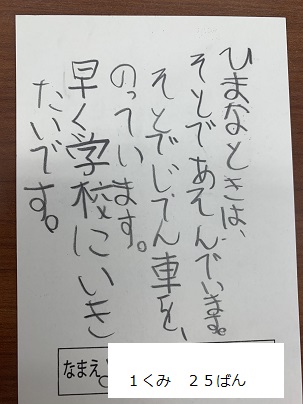 ひまなときは、
そとであそんでいます。
そとでじてん車を、
のっています。
早く学校にいき
たいです。
なまえ
1くみ 25ばん